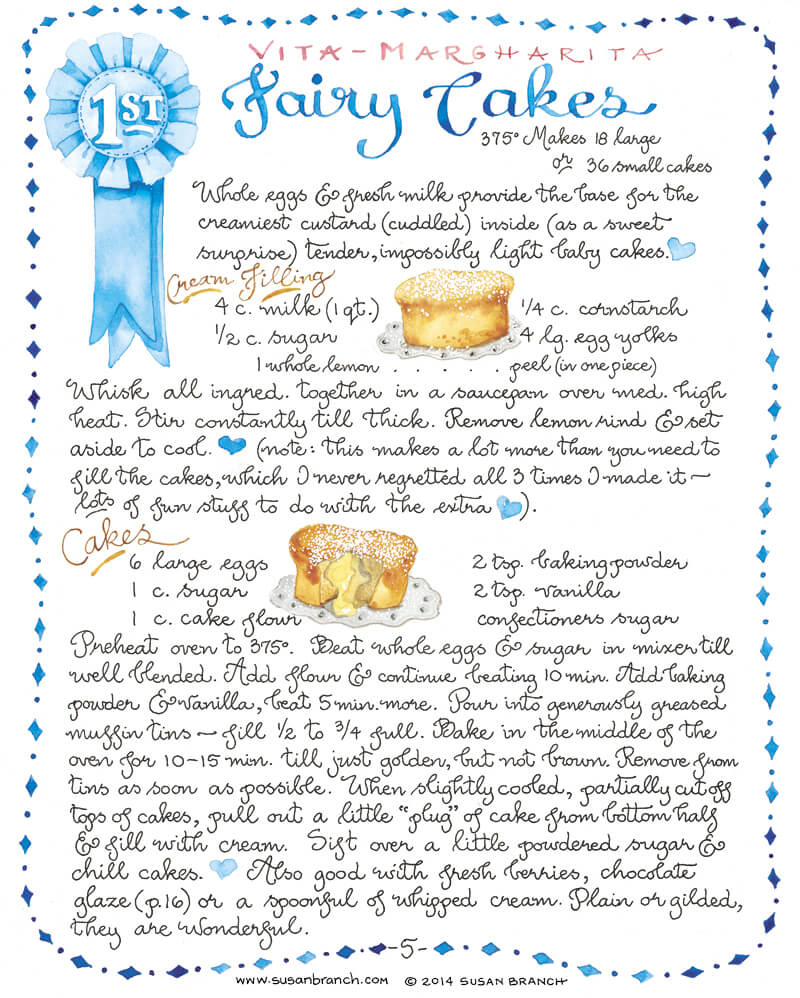 1ST
VITA-MARGHARITA
Fairy Cakes
375° Makes 18 large
or 36 small cakes
Whole eggs & fresh milk provide the base for the
creamiest custard (cuddled) inside (as a sweet
surprise) tender, impossibly light baby cakes.
Cream Filling
4 c. milk (1 qt.) 1/4 c. cornstarch
1/2 c. sugar 4 lg. egg yolks
1 whole lemon . . . . . . peel (in one piece)
Whisk all ingred. together in a saucepan over med. high
heat. Stir constantly till thick. Remove lemon rind & set
aside to cool. (note: this makes a lot more than you need to
fill the cakes, which I never regretted all 3 times I made it ~
lots of fun stuff to do with the extra ).
Cakes
6 large eggs 2 tsp. baking powder
1 c. sugar 2 tsp. vanilla
1 c. cake flour confectioners sugar
Preheat oven to 375°. Beat whole eggs & sugar in mixer till
well blended. Add flour & continue beating 10 min. Add baking
powder & vanilla, beat 5 min. more. Pour into generously greased
muffin tins ~ fill 1/2 to 3/4 full. Bake in the middle of the
oven for 10-15 min. till just golden, but not brown. Remove from
tins as soon as possible. When slightly cooled, partially cut off
tops of cakes, pull out a little "plug" of cake from bottom half
& fill with cream. Sift over a little powdered sugar &
chill cakes. Also good with fresh berries, chocolate
glaze (p.16) or a spoonful of whipped cream. Plain or gilded,
they are wonderful.
-5-
www.susanbranch.com © 2014 SUSAN BRANCH